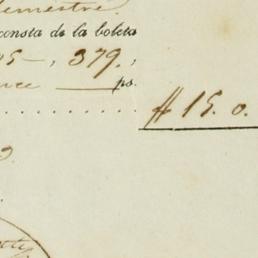 semestre
consta de la boleta
5—, 379.,
nce —— ps.
# 15. 0.